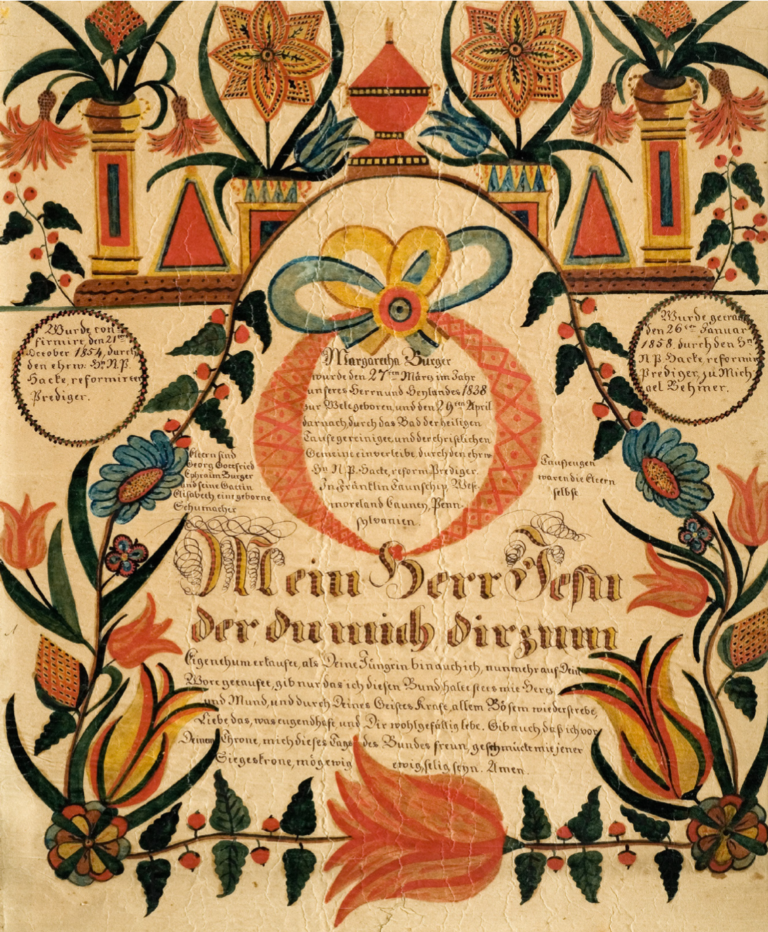 Wurde con-
firmirt, den 21ten
October 1854, durch
den ehrw. Hr. N.P.
Hacke, reformirter
Prediger.
Wurde getraut
den 26ten Januar
1858. durch den Hr.
N.P. Hacke reformir
Prediger, zu Mich
ael Behmer.
Margaretha Burger
wurde den 27ten März im Jahr
unseres Herrn und Heylandes 1838
zur Welt geboren, und den 29ten April
darnach durch das Bad der heiligen
Taufe gereiniget und der christlichen
Gemeine einverleibt durch den ehrw
Hr. N.P. Hacke, reform Prediger.
In Fränklin Taunschip, West-
moreland Caunty, Penn-
sylvanien.
Eltern sind
Georg Gottfried
Ephraim Burger
und seine Gattin
Elisabeth, eine geborne
Schumacher
Taufzeugen
waren die Eltern
selbst
Mein Herr Jesu
der du mich dir zum
Eigenthum erkaufet, als Deine Jüngrin bin auch ich, nunmehr auf Dein
Wort getaufet, gib nur das ich diesen Bund halte stets mit Herz
und Mund, und durch Deines Geistes Kraft, allem Bösem wiederstrebe,
Liebe das, was tugendhaft und Dir wohlgefällig lebe. Gib auch daß ich vor
Deinem Throne, mich dieses Tags des Bundes freun, geschmückt mit jener
Siegeskrone, mög ewig ewig, selig seyn. Amen.